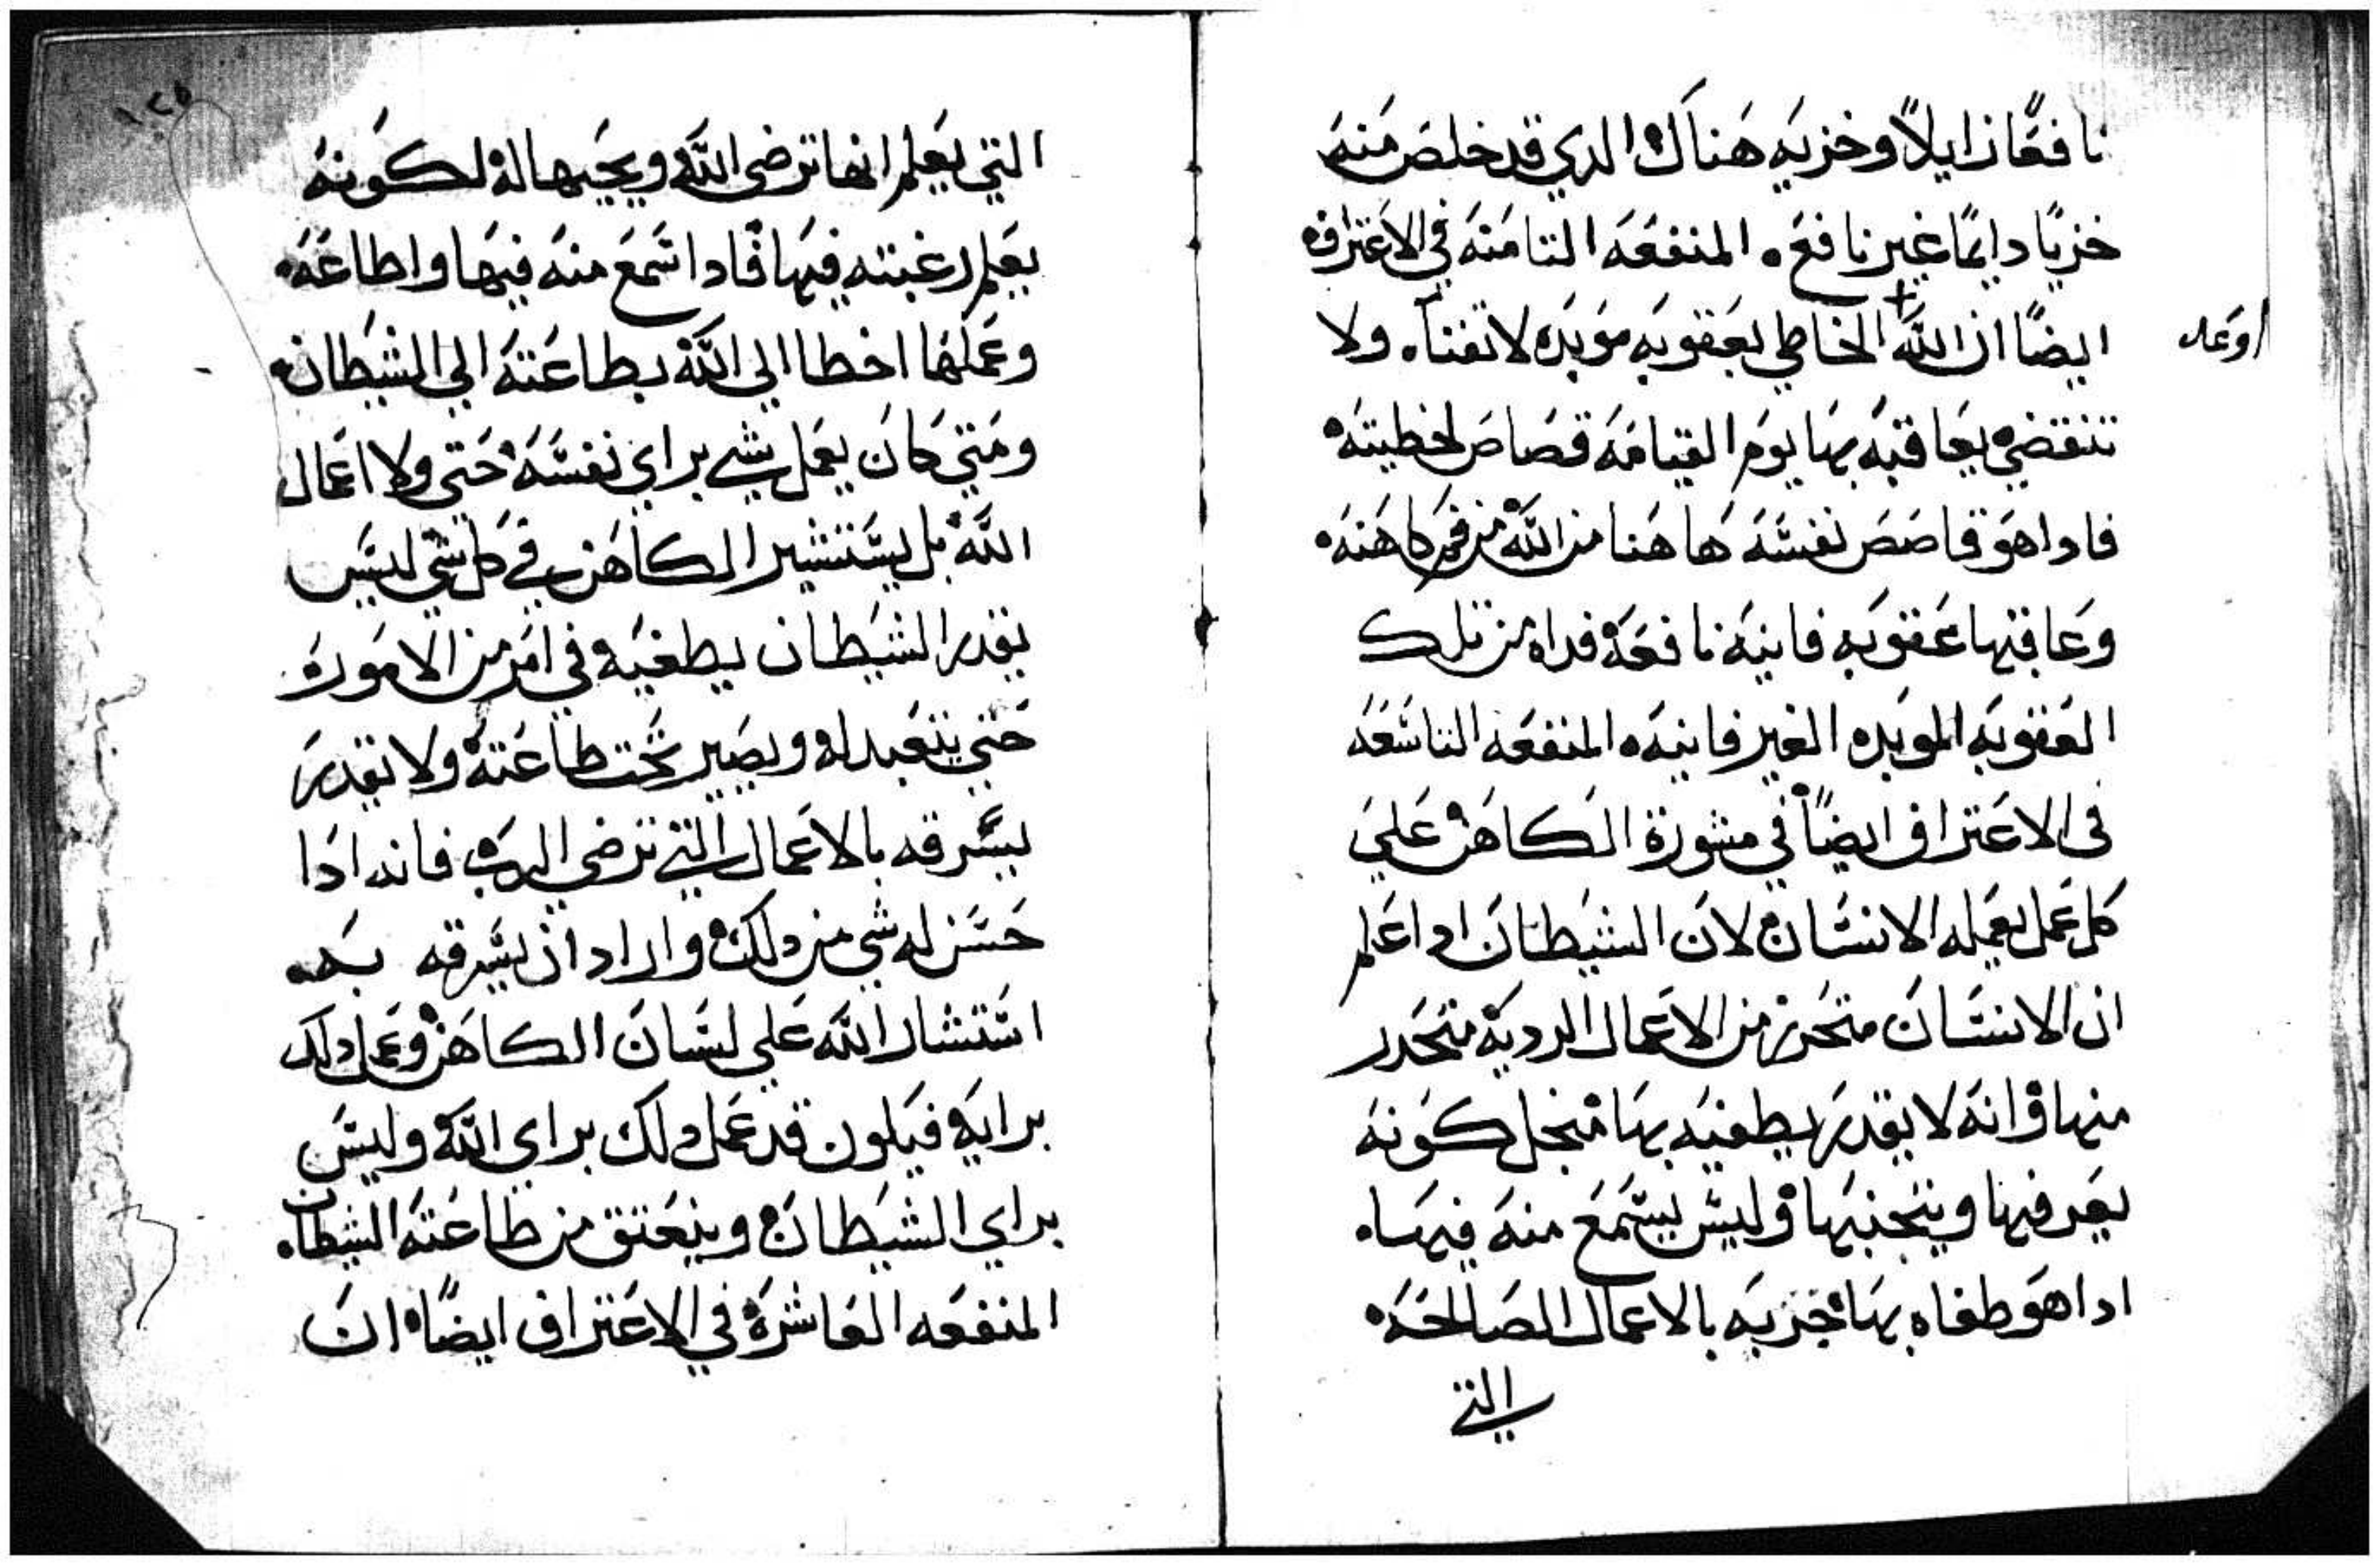 نافعًا زايلاً وخزيه هناك الدي قد خلص منه
خزيًا دايمًا غير نافع. المنفعه التامنه في الاعتراف
ايضًا ان الله + الخاطي بعقوبه موبده لا تفنا. ولا
اوعد
تنقضي يعاقبه بها يوم القيامه قصاص لخطيته
فادا هو قاصص نفسه ها هنا من الله من فم كاهنه
وعاقبها عقوبه فانيه نافعه فداه من تلك
العقوبه الموبده الغير فانيه. المنفعه التاسعه
في الاعتراف ايضًا في مشورة الكاهن علي
كل عمل يعمله الانسان لان الشيطان ادا علم
ان الانسان متحرز من الاعمال الرديه متحدر
منها وانه لا يقدر يطغيه بها منجل كونه
يعرفها ويتجنبها وليس يسمع منه فيها.
ادا هو طغاه بها خزيه بالاعمال الصالحه
التي
١٢٥
التي يعلم انها ترضي الله ويجيبها له لكونه
يعلم رغبته فيها فادا سمع منه فيها واطاعه.
وعملها اخطا الي الله بطاعته الي الشيطان.
ومتي كان يعمل بشي براي نفسه حتي ولا اعمال
الله بل يستشير الكاهن في كل شي ليس
يقدر الشيطان يطغيه في امر من الاموره
حتي يتعبد له ويصير تحت طاعته ولا يقدر
يسرقه بالاعمال التي ترضي الرب فانه ادا
حسن له شي من دلك واراد ان يسرقه به
استشار الله علي لسان الكاهن وعمل دلك
برايه فيكون قد عمل دلك براي الله وليس
براي الشيطان وينعتق من طاعته الشيطان
المنفعه العاشره في الاعتراف ايضًا ان